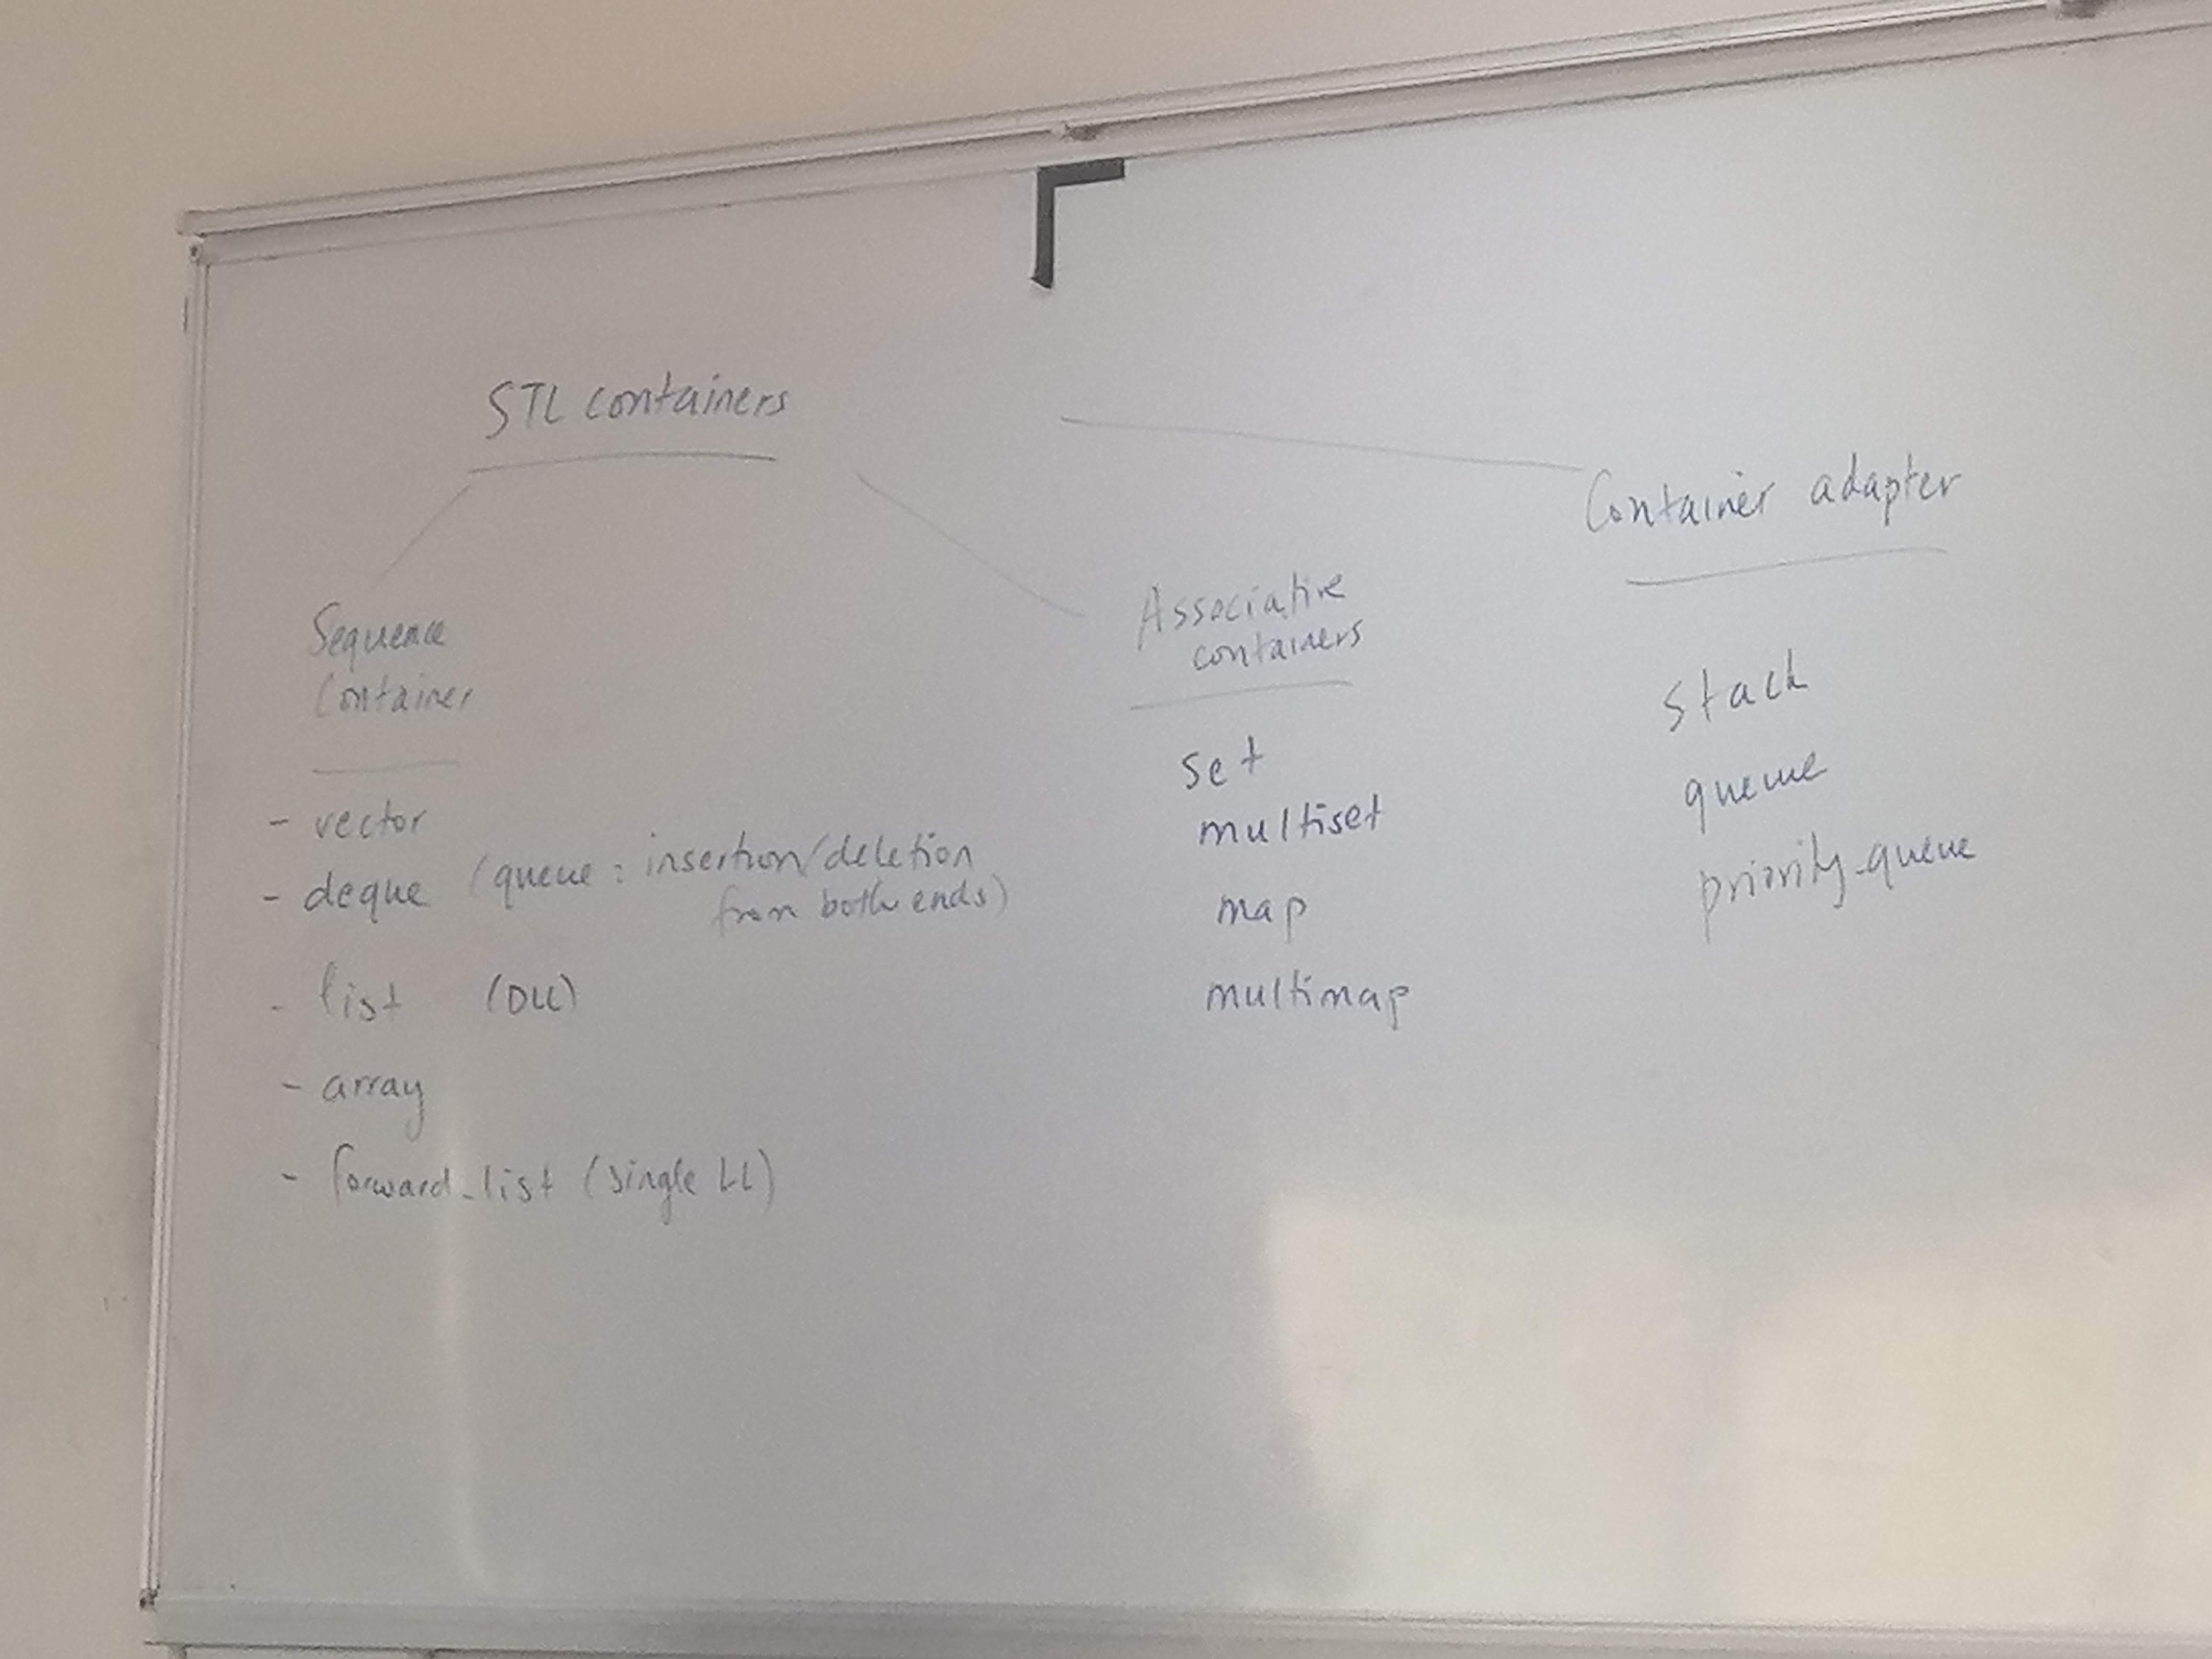 STL containers
Sequence
Container
- vector
- deque (queue : insertion/deletion
from both ends)
- list (DLL)
- array
- forward_list (single LL)
Associative
containers
set
multiset
map
multimap
Container adapter
stack
queue
priority_queue